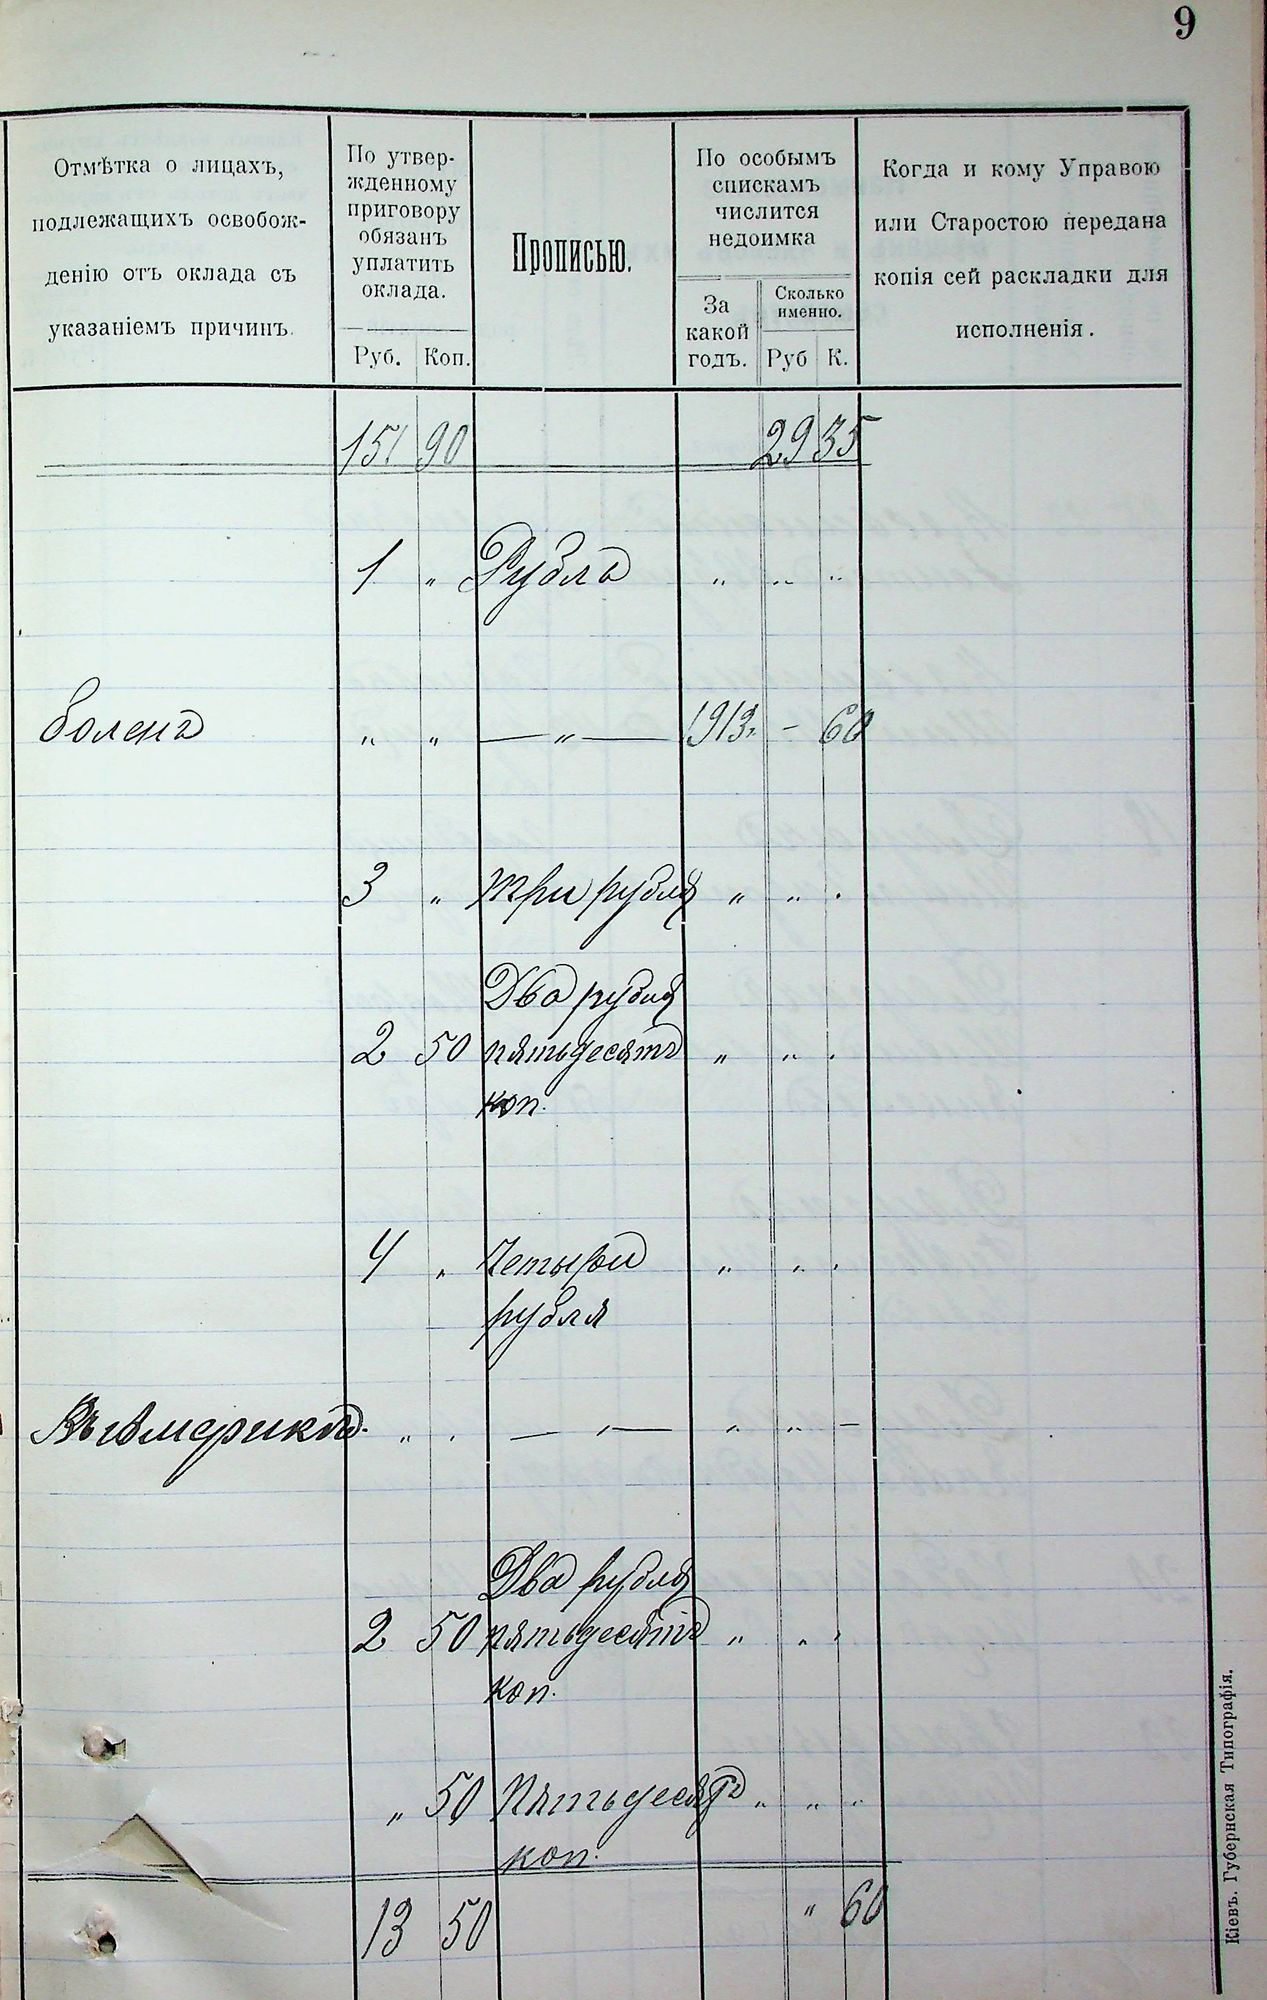 9
Отмѣтка о лицахъ,
подлежащихъ освобож-
денію отъ оклада съ
указаніемъ причинъ.
По утвер-
жденному
приговору
обязанъ
уплатить
оклада.
Руб. Коп.
Прописью.
По особымъ
спискамъ
числится
недоимка
За
какой
годъ.
Сколько
именно.
Руб К.
Когда и кому Управою
или Старостою передана
копія сей раскладки для
исполненія.
151 90 29 35
1 „ Рубль „ „ „
боленъ „ „ — „ — 1913г. - 60
3 „ три рубля „ „ „
Два рубля
2 50 пятьдесятъ „ „ „
коп.
4 „ Четыри „ „ „
рубля
Въ Америкѣ. „ „ — „ — „ „ —
Два рубля
2 50 пятьдесятъ „ „ „
коп.
„ 50 Пятьдесятъ „ „ „
коп.
13 50 „ 60
Кіевъ. Губернская Типографія.